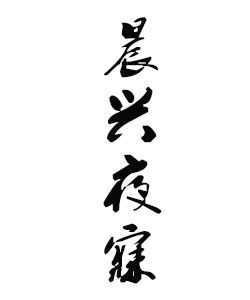 晨兴夜寐